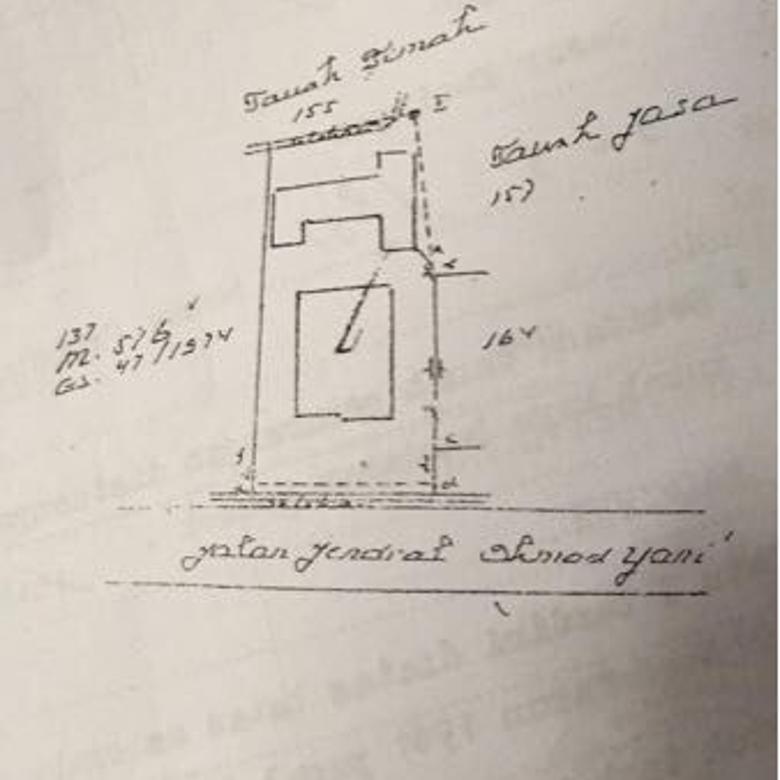 Tanah Timah
155
I
Tanah Jasa
157
137
M. 576
GS. 47/1974
164
c
d
selokan
Jalan Jendral Ahmad Yani